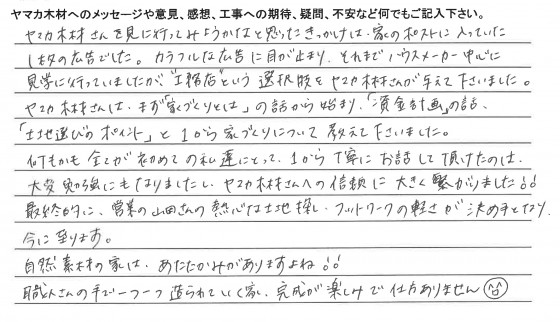 ヤマカ木材へのメッセージや意見、感想、工事への期待、疑問、不安など何でもご記入下さい。
ヤマカ木材さんを見に行ってみようかなと思ったきっかけは、家のポストに入っていた
1枚の広告でした。カラフルな広告に目が止まり、それまでハウスメーカー中心に
見学に行っていましたが、"工務店"という選択肢をヤマカ木材さんが与えて下さいました。
ヤマカ木材さんは、まず「家づくりとは」の話から始まり、「資金計画」の話、
「土地選びのポイント」と1から家づくりについて教えて下さいました。
何もかも全てが初めての私達にとって、1から丁寧にお話して頂けたのは、
大変勉強にもなりましたし、ヤマカ木材さんへの信頼に大きく繋がりました!!
最終的に、営業の山田さんの熱心な土地探し、フットワークの軽さが決め手となり、
今に至ります。
自然素材の家は、あたたかみがありますよね!!
職人さんの手で一つ一つ造られていく家、完成が楽しみで仕方ありません